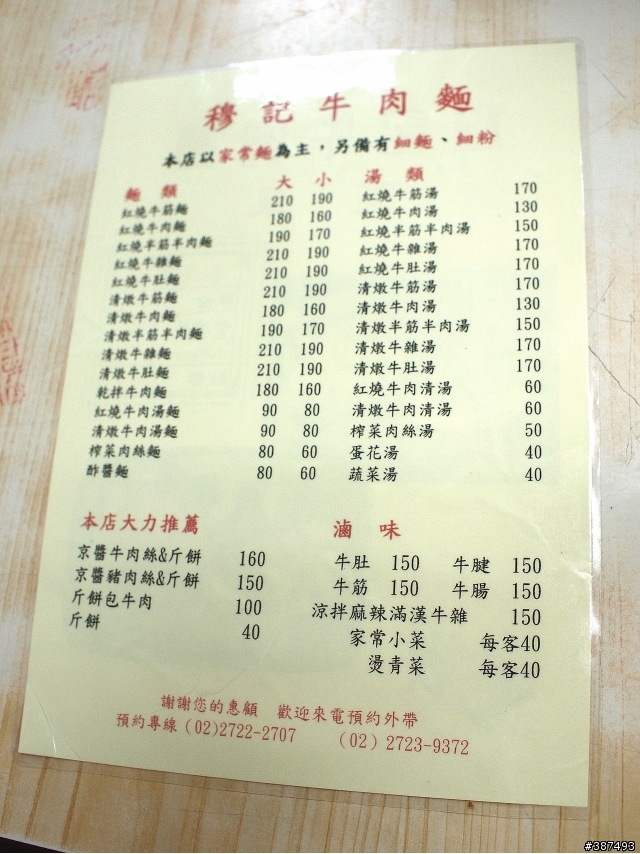 穆記牛肉麵
本店以家常麵為主，另備有細麵、細粉
麵 類 大 小
紅燒牛筋麵 210 190
紅燒牛肉麵 180 160
紅燒半筋半肉麵 190 170
紅燒牛雜麵 210 190
紅燒牛肚麵 210 190
清燉牛筋麵 210 190
清燉牛肉麵 180 160
清燉半筋半肉麵 190 170
清燉牛雜麵 210 190
清燉牛肚麵 210 190
乾拌牛肉麵 180 160
紅燒牛肉湯麵 90 80
清燉牛肉湯麵 90 80
榨菜肉絲麵 80 60
酢醬麵 80 60
湯 類
紅燒牛筋湯 170
紅燒牛肉湯 130
紅燒半筋半肉湯 150
紅燒牛雜湯 170
紅燒牛肚湯 170
清燉牛筋湯 170
清燉牛肉湯 130
清燉半筋半肉湯 150
清燉牛雜湯 170
清燉牛肚湯 170
紅燒牛肉清湯 60
清燉牛肉清湯 60
榨菜肉絲湯 50
蛋花湯 40
蔬菜湯 40
本店大力推薦
京醬牛肉絲&斤餅 160
京醬豬肉絲&斤餅 150
斤餅包牛肉 100
斤餅 40
滷 味
牛肚 150 牛腱 150
牛筋 150 牛腸 150
涼拌麻辣滿漢牛雜 150
家常小菜 每客40
燙青菜 每客40
謝謝您的惠顧 歡迎來電預約外帶
預約專線(02)2722-2707 (02) 2723-9372
#387493